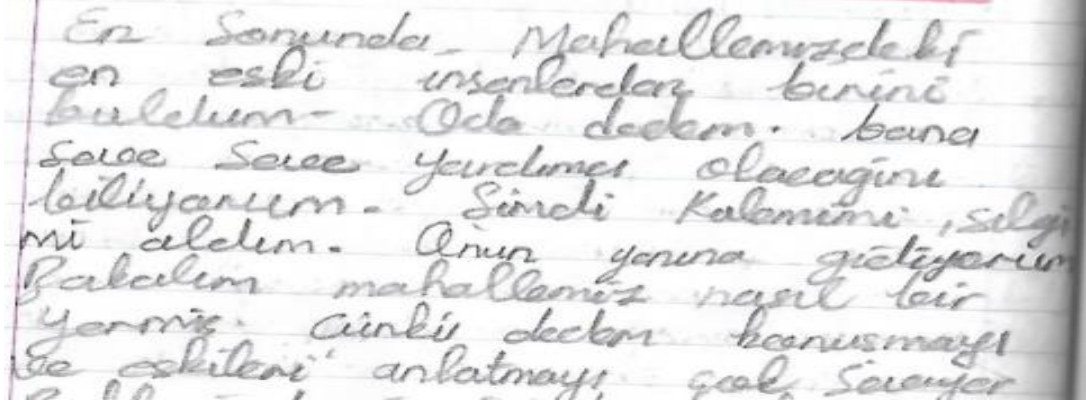 En Sonunda. Mahallemizdeki
en eski insanlardan birini
buldum. Oda dedem. bana
seve seve yardımcı olacağını
biliyorum. Şimdi Kalemimi, silgi
mi aldım. Onun yanına gidiyorum
Bakalım mahallemiz nasıl bir
yermiş. Çünkü dedem konuşmayı
ve eskileri anlatmayı çok seviyor